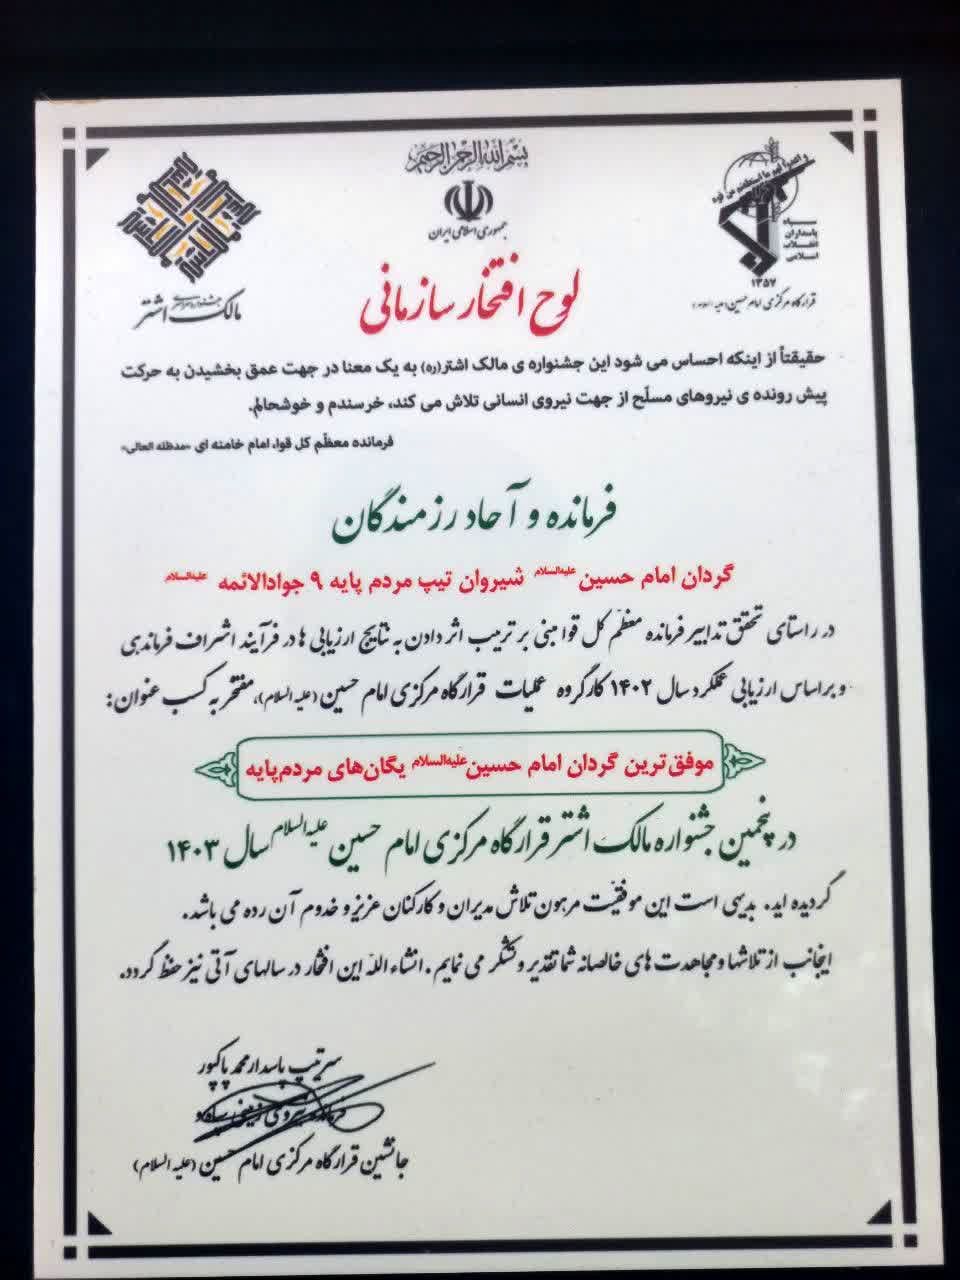 بسم الله الرحمن الرحیم
جمهوری اسلامی ایران
و اعدوا لهم ما استطعتم من قوة
سپاه
پاسداران
انقلاب
اسلامی
۱۳۵۷
قرارگاه مرکزی امام حسین (علیه السلام)
جشنواره سراسری
مالک اشتر
لوح افتخار سازمانی
حقیقتاً از اینکه احساس می شود این جشنواره ی مالک اشتر(ره) به یک معنا در جهت عمق بخشیدن به حرکت
پیش رونده ی نیروهای مسلّح از جهت نیروی انسانی تلاش می کند، خرسندم و خوشحالم.
فرمانده معظّم کل قوا، امام خامنه ای «مدظله العالی»
فرمانده و آحاد رزمندگان
گردان امام حسین علیه‌السلام شیروان تیپ مردم پایه ۹ جوادالائمه علیه‌السلام
در راستای تحقق تدابیر فرمانده معظّم کل قوا مبنی بر ترتیب اثر دادن به نتایج ارزیابی ها در فرآیند اشراف فرماندهی
و بر اساس ارزیابی عملکرد سال ۱۴۰۲ کارگروه عملیات قرارگاه مرکزی امام حسین (علیه السلام)، مفتخر به کسب عنوان:
موفق‌ترین گردان امام حسین علیه‌السلام یگان‌های مردم‌پایه
در پنجمین جشنواره مالک اشتر قرارگاه مرکزی امام حسین علیه السلام سال ۱۴۰۳
گردیده اید. بدیهی است این موفقیّت مرهون تلاش مدیران و کارکنان عزیز و خدوم آن رده می باشد.
اینجانب از تلاشها و مجاهدت های خالصانه شما تقدیر و تشکر می نمایم. انشاء الله این افتخار در سالهای آتی نیز حفظ گردد.
سرتیپ پاسدار محمد پاکپور
فرمانده نیروی زمینی سپاه و
جانشین قرارگاه مرکزی امام حسین (علیه السلام)